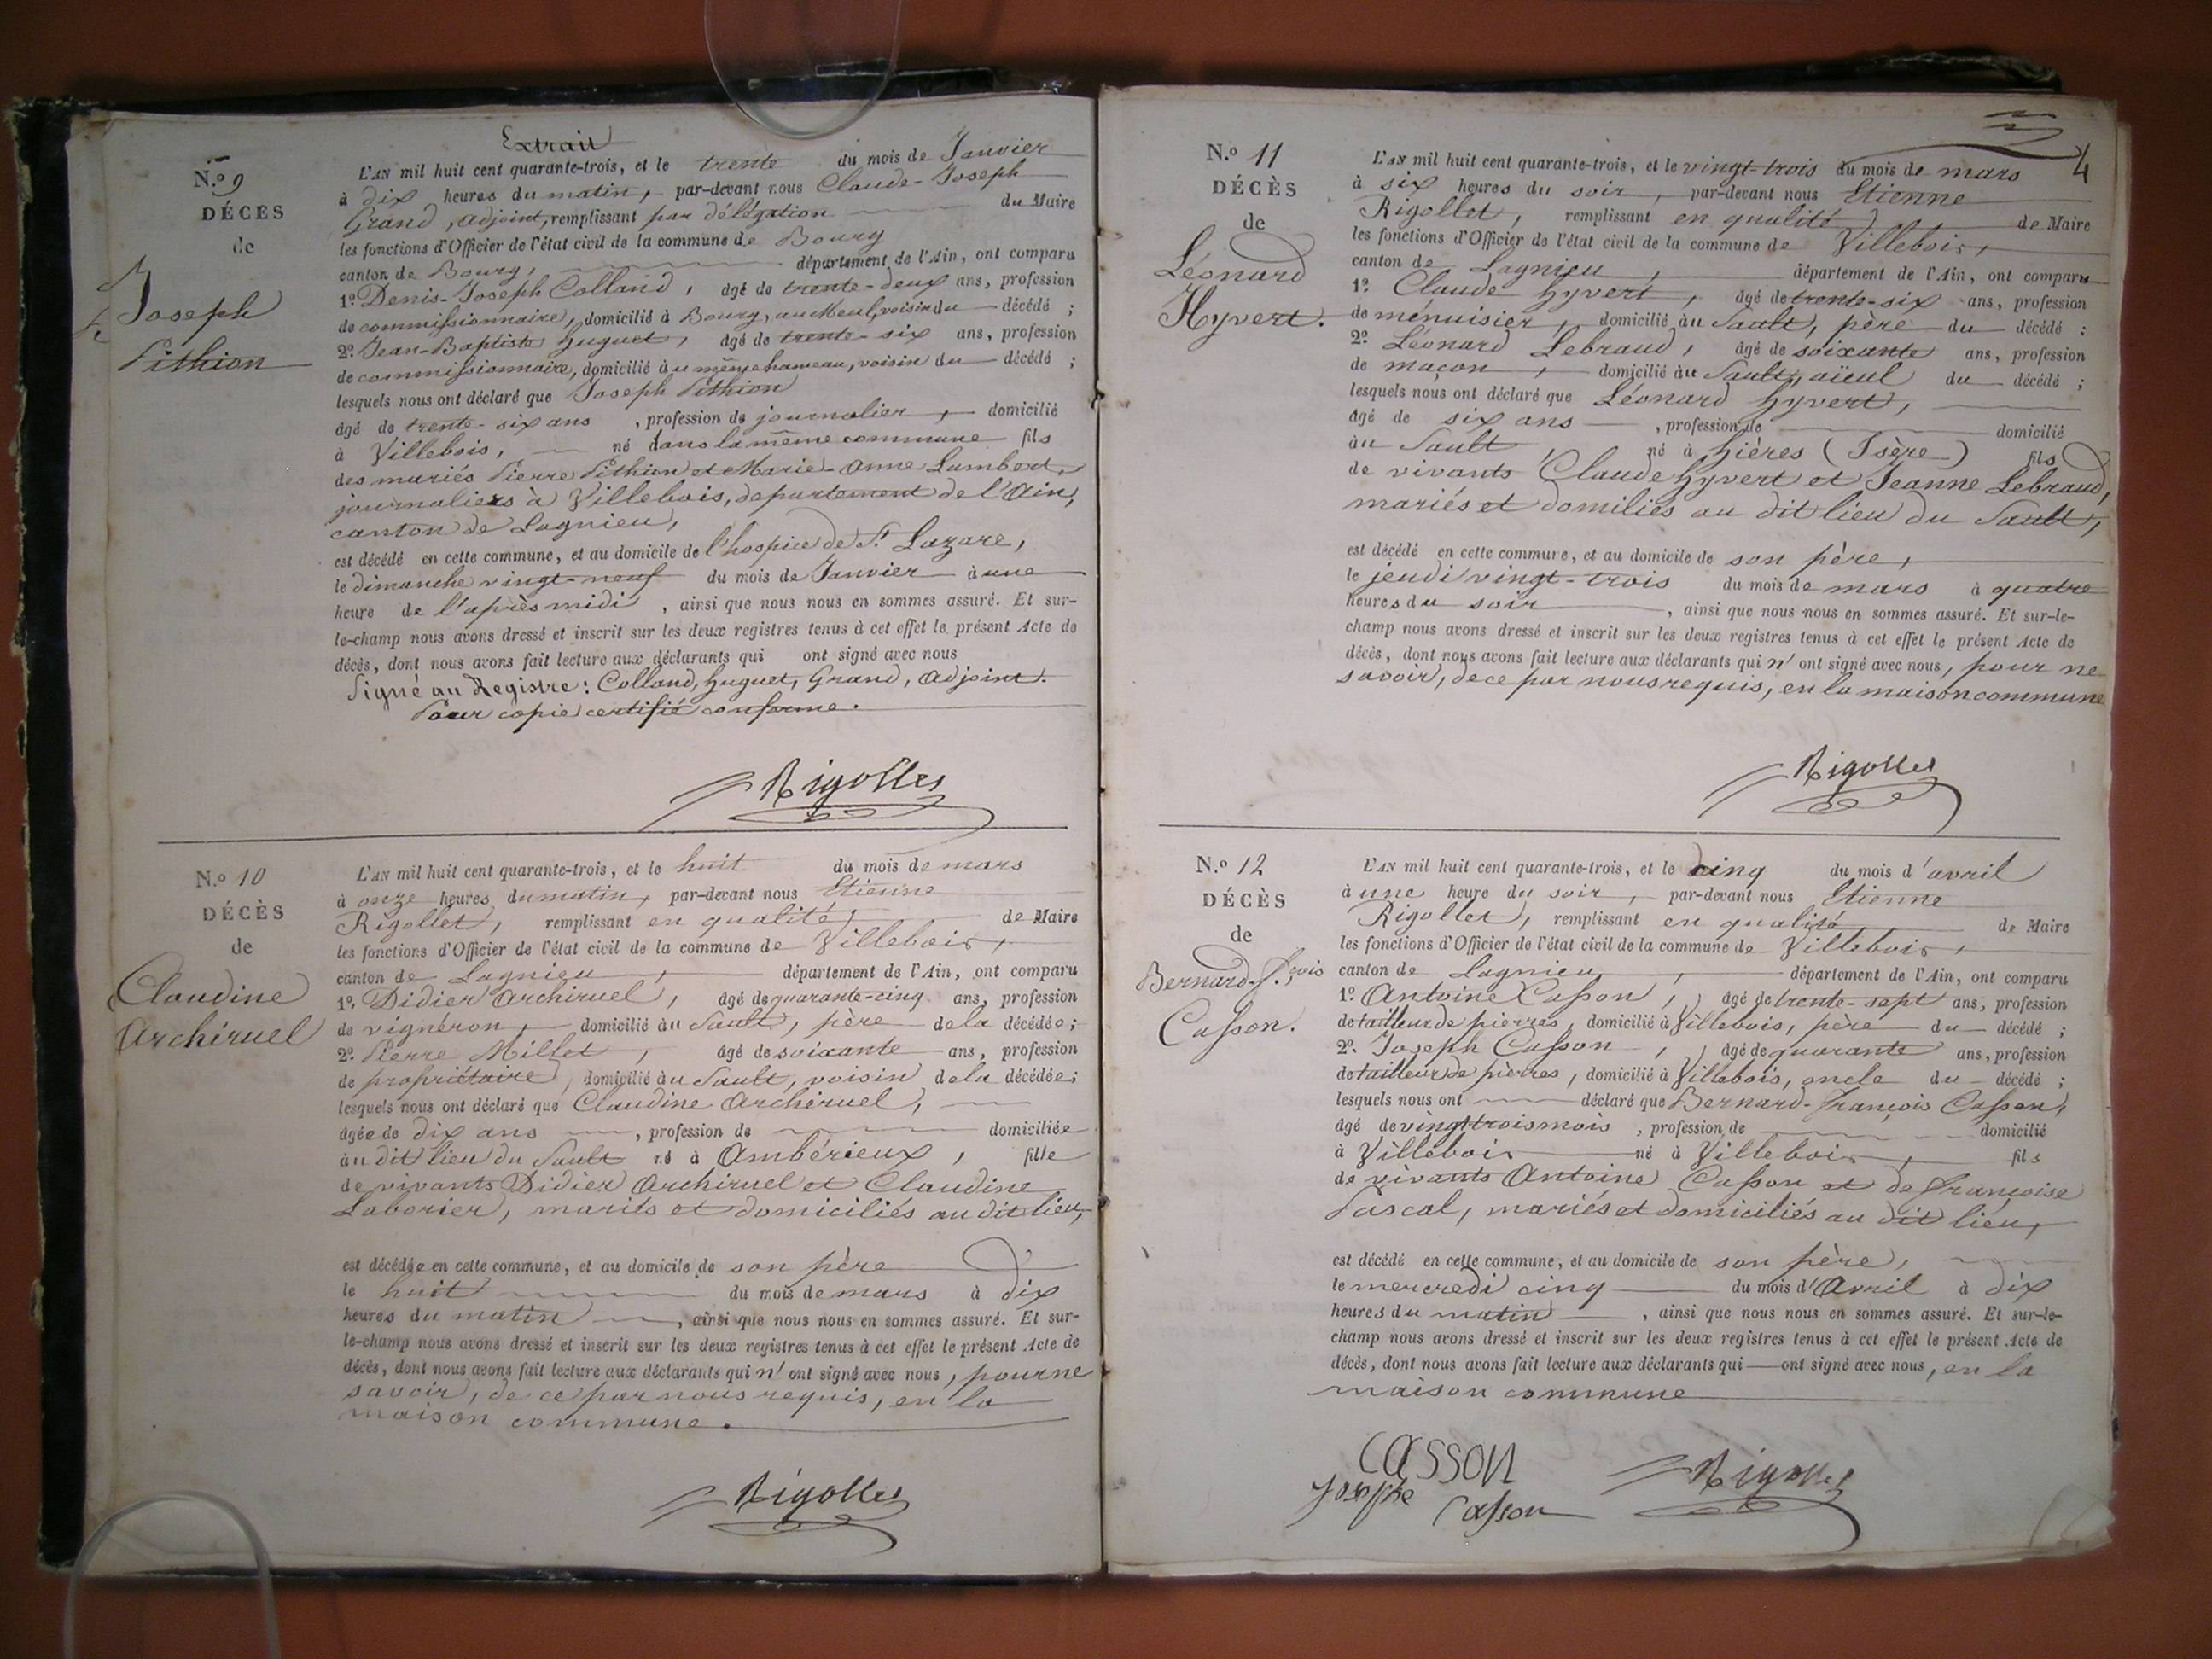 Extrait
N.º 9
DÉCÈS
de
Joseph
Pithion
L'AN mil huit cent quarante-trois, et le trente du mois de Janvier
à dix heures du matin, par-devant nous Claude-Joseph
Grand, adjoint, remplissant par délégation du Maire
les fonctions d'Officier de l'état civil de la commune de Bourg
canton de Bourg, département de l'Ain, ont comparu
1º. Denis-Joseph Colland, âgé de trente-deux ans, profession
de commissionnaire, domicilié à Bourg, au Meul, voisin du décédé ;
2º. Jean-Baptiste Huguet, âgé de trente-six ans, profession
de commissionnaire, domicilié au même hameau, voisin du décédé ;
lesquels nous ont déclaré que Joseph Pithion
âgé de trente-six ans, profession de journalier, domicilié
à Villebois, né dans la même commune fils
des mariés Pierre Pithion et Marie-Anne Lambert,
journaliers à Villebois, département de l'Ain,
canton de Lagnieu,
est décédé en cette commune, et au domicile de l'hospice de St. Lazare,
le dimanche vingt-neuf du mois de Janvier à une
heure de l'après midi, ainsi que nous nous en sommes assuré. Et sur-
le-champ nous avons dressé et inscrit sur les deux registres tenus à cet effet le présent Acte de
décès, dont nous avons fait lecture aux déclarants qui ont signé avec nous
Signé au Registre : Colland, Huguet, Grand, Adjoint.
Pour copie certifié conforme.
Rigollet
N.º 10
DÉCÈS
de
Claudine
Archiruel
L'AN mil huit cent quarante-trois, et le huit du mois de mars
à onze heures du matin, par-devant nous Etienne
Rigollet, remplissant en qualité de Maire
les fonctions d'Officier de l'état civil de la commune de Villebois,
canton de Lagnieu, département de l'Ain, ont comparu
1º. Didier Archiruel, âgé de quarante-cinq ans, profession
de vignéron, domicilié au Sault, père de la décédée ;
2º. Pierre Millet, âgé de soixante ans, profession
de propriétaire, domicilié au Sault, voisin de la décédée ;
lesquels nous ont déclaré que Claudine Archiruel,
âgée de dix ans, profession de domiciliée
au dit lieu du Sault né à Ambérieux, fille
de vivants Didier Archiruel et Claudine
Laborier, mariés et domiciliés au dit lieu,
est décédée en cette commune, et au domicile de son père
le huit du mois de mars à dix
heures du matin, ainsi que nous nous en sommes assuré. Et sur-
le-champ nous avons dressé et inscrit sur les deux registres tenus à cet effet le présent Acte de
décès, dont nous avons fait lecture aux déclarants qui n'ont signé avec nous, pour ne
savoir, de ce par nous requis, en la
maison commune.
Rigollet
4
N.º 11
DÉCÈS
de
Léonard
Hyvert.
L'AN mil huit cent quarante-trois, et le vingt-trois du mois de mars
à six heures du soir, par-devant nous Etienne
Rigollet, remplissant en qualité de Maire
les fonctions d'Officier de l'état civil de la commune de Villebois,
canton de Lagnieu, département de l'Ain, ont comparu
1º. Claude Hyvert, âgé de trente-six ans, profession
de ménuisier, domicilié au Sault, père du décédé :
2º. Léonard Lebraud, âgé de soixante ans, profession
de maçon, domicilié au Sault, aïeul du décédé ;
lesquels nous ont déclaré que Léonard Hyvert,
âgé de six ans, profession de domicilié
au Sault, né à Hières (Isère) fils
de vivants Claude Hyvert et Jeanne Lebraud,
mariés et domiliés au dit lieu du Sault,
est décédé en cette commune, et au domicile de son père,
le jeudi vingt-trois du mois de mars à quatre
heures du soir, ainsi que nous nous en sommes assuré. Et sur-le-
champ nous avons dressé et inscrit sur les deux registres tenus à cet effet le présent Acte de
décès, dont nous avons fait lecture aux déclarants qui n'ont signé avec nous, pour ne
savoir, de ce par nous requis, en la maison commune
Rigollet
N.º 12
DÉCÈS
de
Bernard-f.çois
Casson.
L'AN mil huit cent quarante-trois, et le cinq du mois d'avril
à une heure du soir, par-devant nous Etienne
Rigollet, remplissant en qualité de Maire
les fonctions d'Officier de l'état civil de la commune de Villebois,
canton de Lagnieu, département de l'Ain, ont comparu
1º. Antoine Casson, âgé de trente-sept ans, profession
de tailleur de pierres, domicilié à Villebois, père du décédé ;
2º. Joseph Casson, âgé de quarante ans, profession
de tailleur de pierres, domicilié à Villebois, oncle du décédé ;
lesquels nous ont déclaré que Bernard-françois Casson,
âgé de vingt trois mois, profession de domicilié
à Villebois né à Villebois, fils
de vivants Antoine Casson et de françoise
Pascal, mariés et domiciliés au dit lieu,
est décédé en cette commune, et au domicile de son père,
le mercredi cinq du mois d'Avril à dix
heures du matin, ainsi que nous nous en sommes assuré. Et sur-le-
champ nous avons dressé et inscrit sur les deux registres tenus à cet effet le présent Acte de
décès, dont nous avons fait lecture aux déclarants qui ont signé avec nous, en la
maison commune
CASSON
Josephe Casson
Rigollet